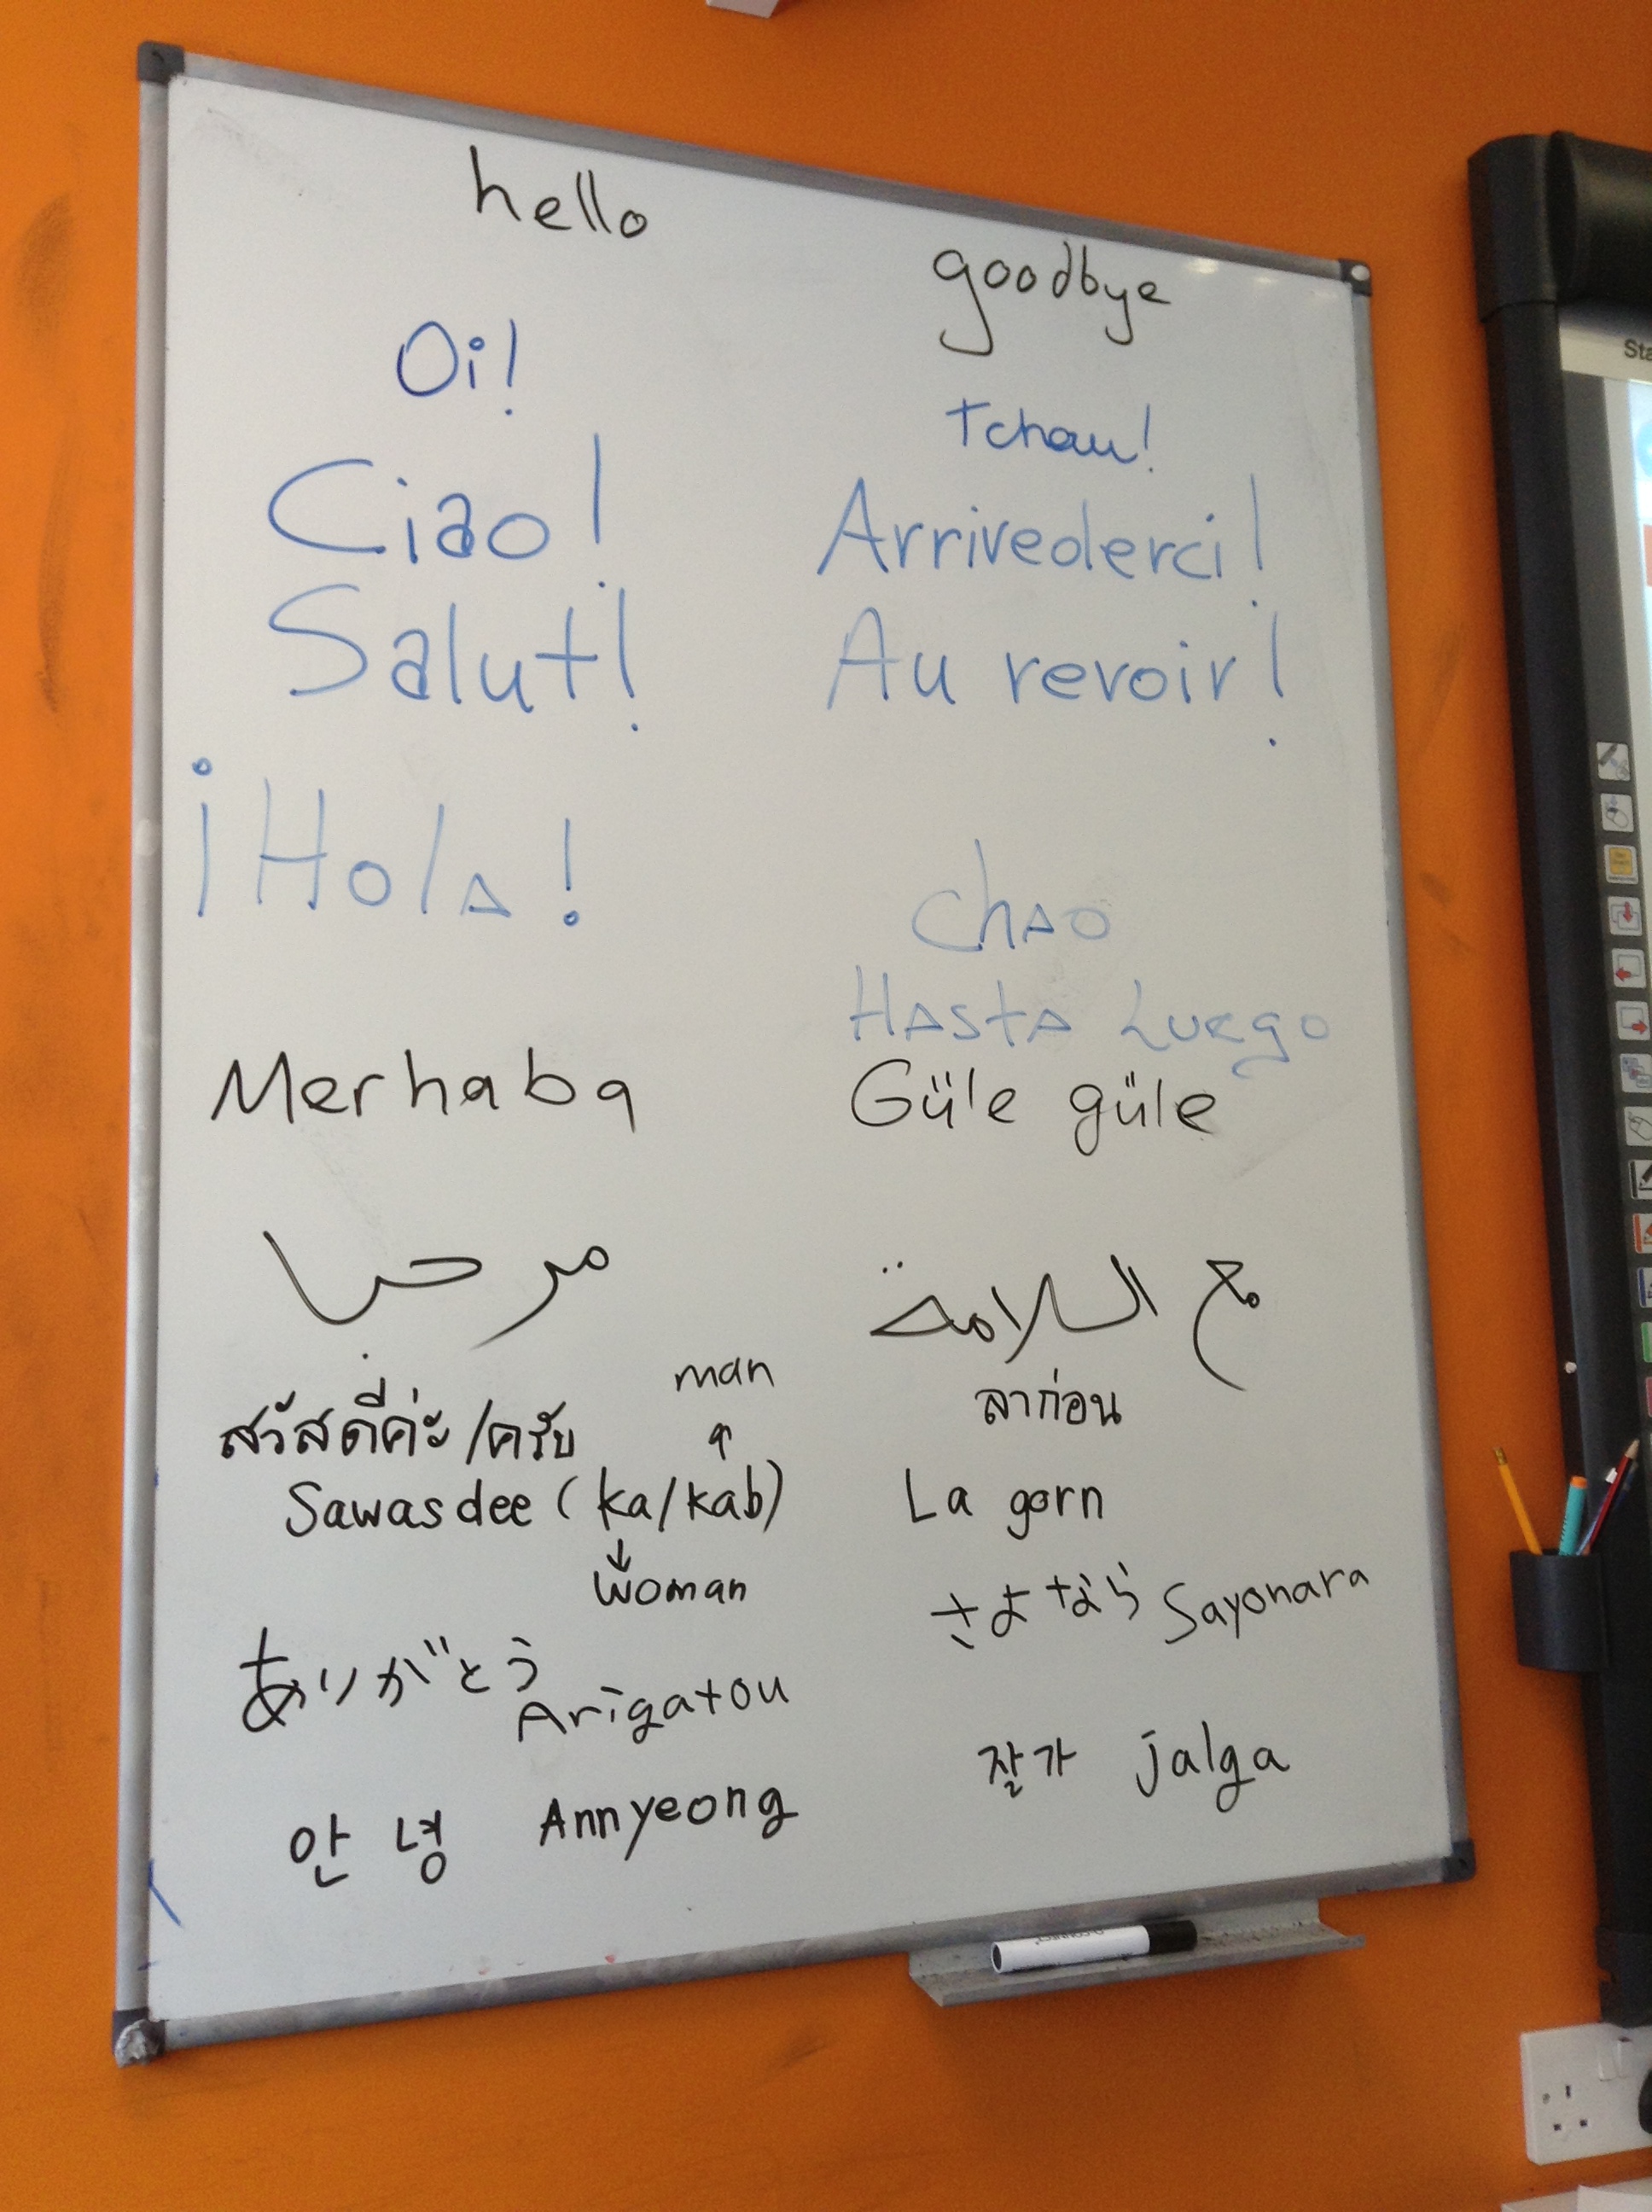 hello
goodbye
Oi!
Tchau!
Ciao!
Arrivederci!
Salut!
Au revoir!
¡Hola!
Chao
Hasta Luego
Merhaba
Güle güle
مرحبا
مع السلامة
man
สวัสดีค่ะ/ครับ
ลาก่อน
Sawasdee (ka/kab)
La gorn
woman
さよなら Sayonara
ありがとう Arigatou
잘가 jalga
안녕 Annyeong
Sta